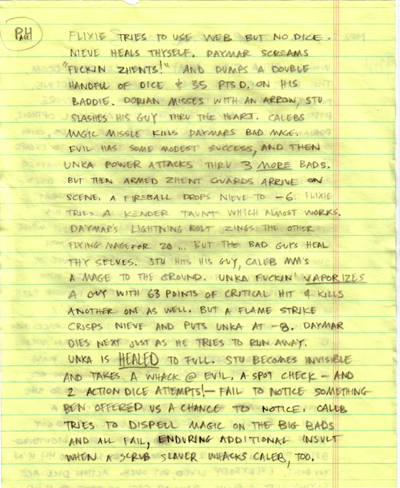 PH
FLIXIE TRIES TO USE WEB BUT NO DICE.
NIEVE HEALS THYSELF. DAYMAR SCREAMS
"FUCKIN ZHENTS!" AND DUMPS A DOUBLE
HANDFUL OF DICE & 35 PTS D. ON HIS
BADDIE. DORIAN MISSES WITH AN ARROW, STU
SLASHES HIS GUY THRU THE HEART. CALEBS
MAGIC MISSLE KILLS DAYMARS BAD MAGE.
EVIL HAS SOME MODEST SUCCESS, AND THEN
UNKA POWER ATTACKS THRU 3 MORE BADS.
BUT THEN ARMED ZHENT GUARDS ARRIVE ON
SCENE. A FIREBALL DROPS NIEVE TO -6. FLIXIE
TRIES A KENDER TAUNT WHICH ALMOST WORKS.
DAYMAR'S LIGHTNING BOLT ZINGS THE OTHER
FIXING MAGE FOR 20 ... BUT THE BAD GUYS HEAL
THY SELVES. STU HITS HIS GUY, CALEB MM'S
A MAGE TO THE GROUND. UNKA FUCKIN' VAPORIZES
A GUY WITH 63 POINTS OF CRITICAL HIT & KILLS
ANOTHER ONE AS WELL. BUT A FLAME STRIKE
CRISPS NIEVE AND PUTS UNKA AT -8. DAYMAR
DIES NEXT JUST AS HE TRIES TO RUN AWAY.
UNKA IS HEALED TO FULL. STU BECOMES INVISIBLE
AND TAKES A WHACK @ EVIL. A SPOT CHECK - AND
2 ACTION DICE ATTEMPTS! - FAIL TO NOTICE SOMETHING
BEN OFFERED US A CHANCE TO NOTICE. CALEB
TRIES TO DISPELL MAGIC ON THE BIG BADS
AND ALL FAIL, ENDURING ADDITIONAL INSULT
WHEN A SCRUB SLAVER WHACKS CALEB, TOO.